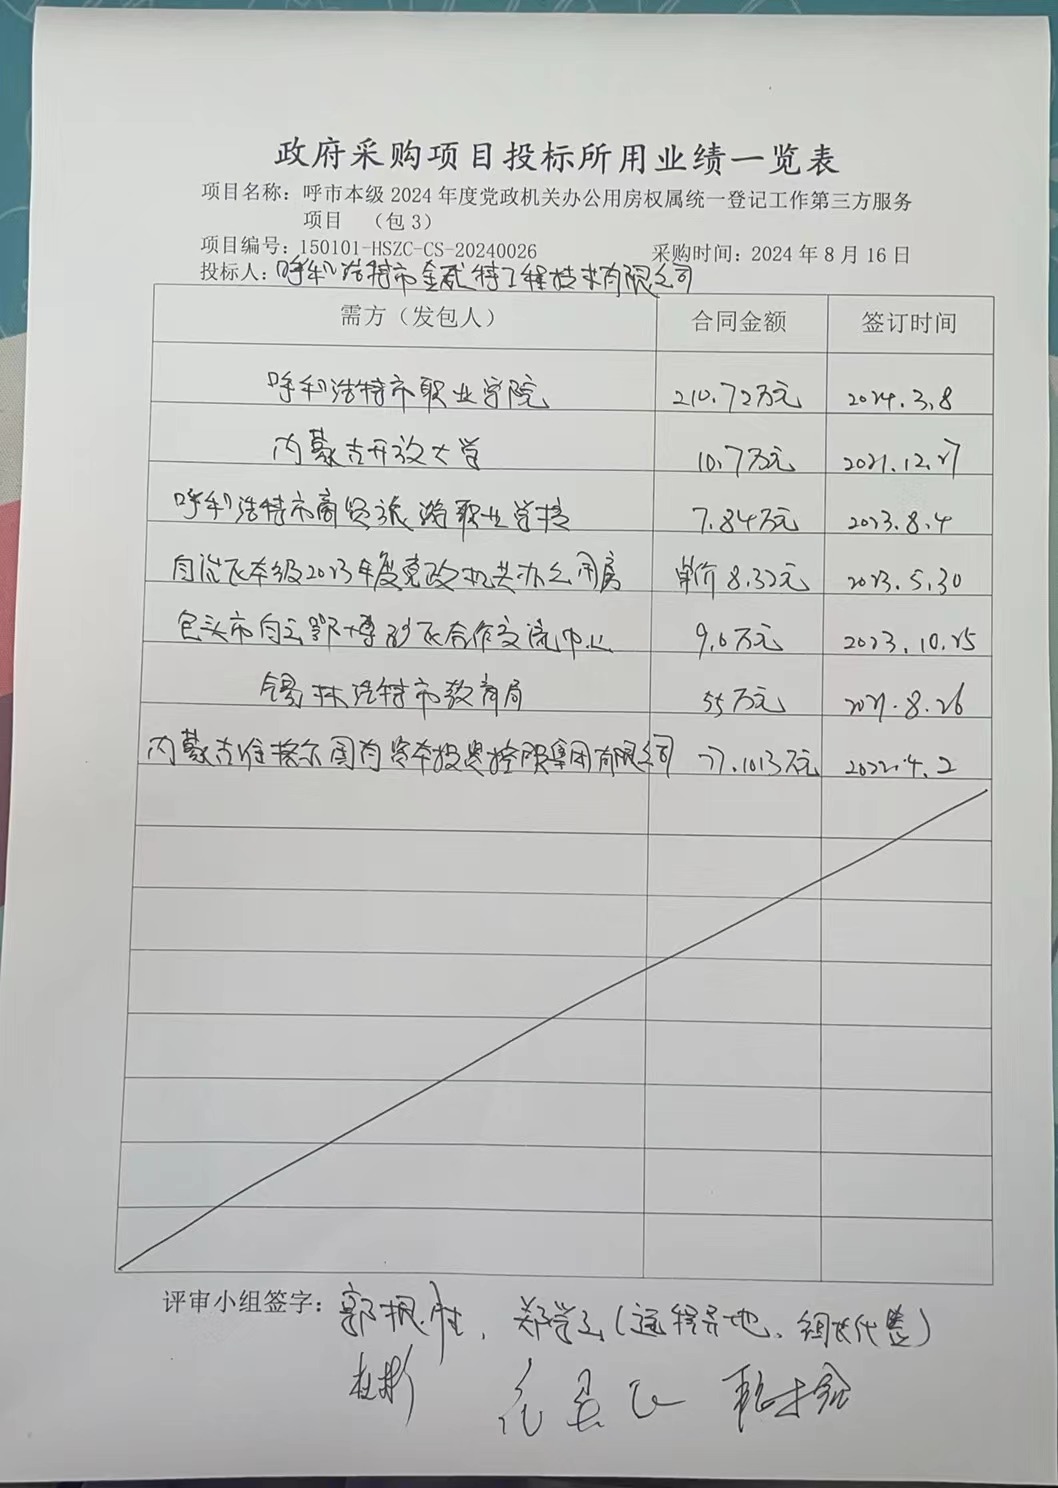 政府采购项目投标所用业绩一览表
项目名称：呼市本级 2024 年度党政机关办公用房权属统一登记工作第三方服务
项目 （包 3）
项目编号：150101-HSZC-CS-20240026 采购时间：2024 年 8 月 16 日
投标人：呼和浩特市金威特工程技术有限公司
需方（发包人） 合同金额 签订时间
呼和浩特市职业学院 210.72万元 2024.3.8
内蒙古开放大学 10.7万元 2021.12.27
呼和浩特市商贸旅游职业学校 7.84万元 2023.8.4
自治区本级2023年度党政机关办公用房 单价8.32元 2023.5.30
包头市白云鄂博矿区合作交流中心 9.6万元 2023.10.25
锡林浩特市教育局 55万元 2021.8.26
内蒙古准格尔国有资本投资控股集团有限公司 77.1013万元 2022.4.2
评审小组签字：郭振胜、郑学玉（远程异地、组长代签）